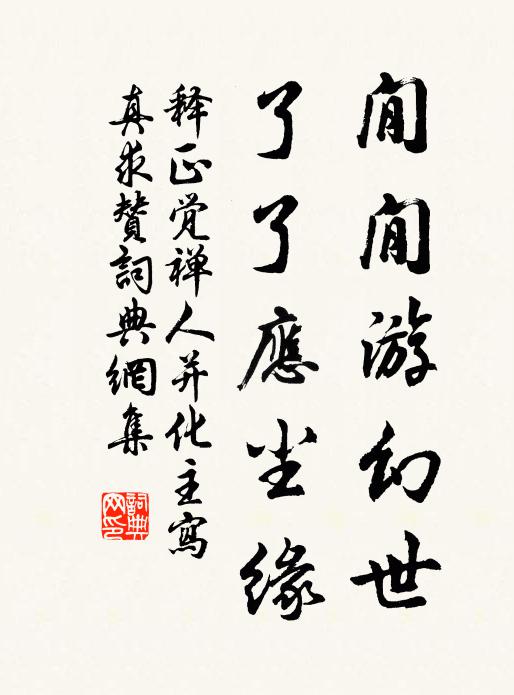 閒閒游幻世
了了應尘緣
释正觉禅人并化主寫
真求贊詞典網集
詞典
网印